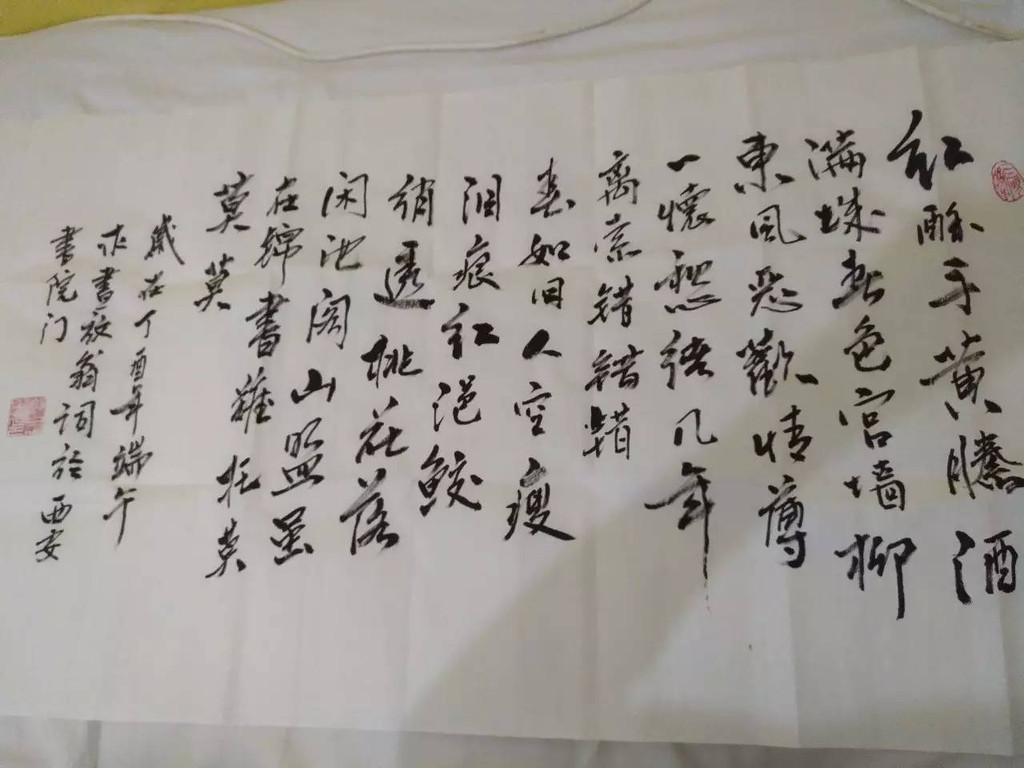 红酥手黄腾酒
满城春色宫墙柳
東风恶歡情薄
一懷愁绪几年
离索错错错
春如旧人空瘦
泪痕红浥鲛
绡透桃花落
闲池阁山盟虽
在锦書难托莫
莫莫
歲在丁酉年端午
書放翁词於西安
書院门